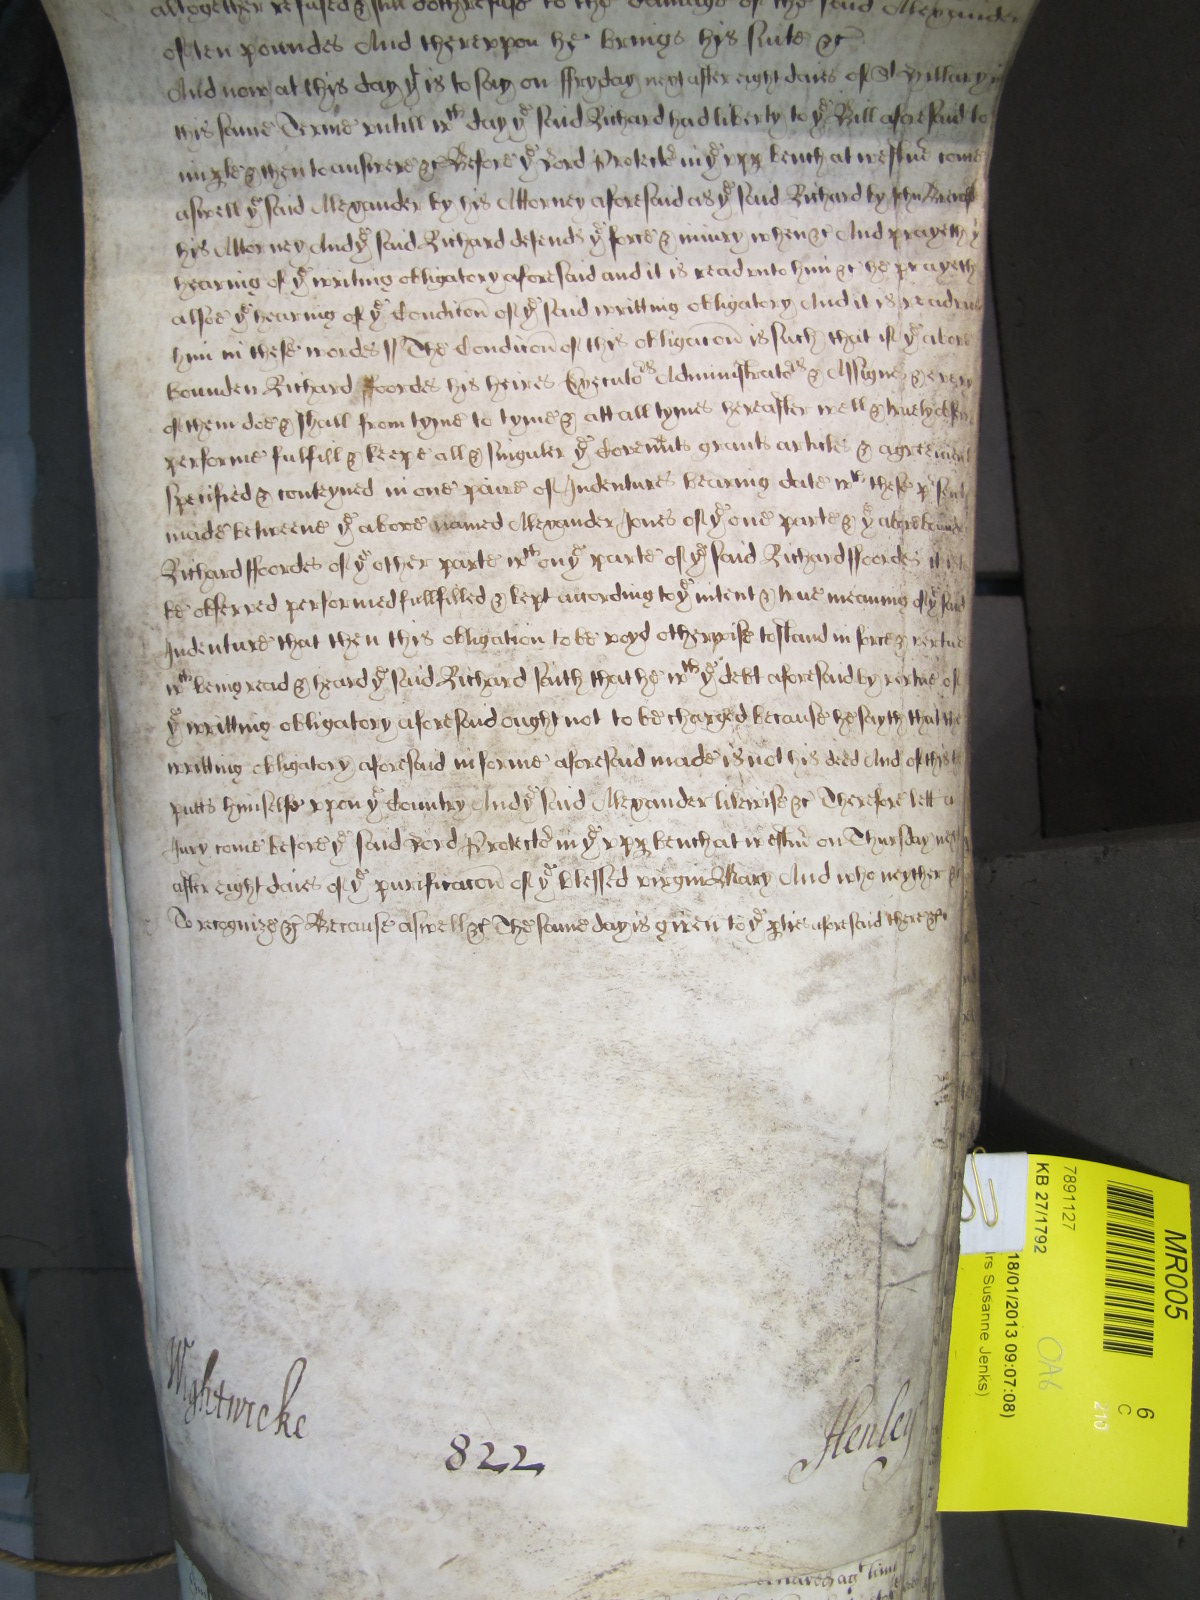 altogether refused & still doth refuse to the damage of the said Alexander
of ten poundes And thereuppon he brings his suite &c
And now at this day yt is to say on ffryday next after eight daies of St Hillary
this same Terme untill wch day ye said Richard had liberty to ye Bill aforesaid to
imple & then to answere &c Before ye Lord Protector in ye upp bench at Westmr come
aswell ye said Alexander by his Attorney aforesaid as ye said Richard by John
his Attorney And ye said Richard defends ye force & iniury when &c And prayeth
hearing of ye writing obligatory aforesaid and it is read unto him &c he prayeth
alsoe ye hearing of ye Condicon of ye said writting obligatory And it is read
him in these wordes // The Condicon of this obligacon is such that if ye above
bounden Richard ffoordes his heires Executors Administrators & Assignes & every
of them doe & shall from tyme to tyme & att all tymes hereafter well & truely
performe fulfill & keepe all & singuler ye Covennts grants articles & agreement
specified & conteyned in one paire of Indentures bearing date wth these psent
made betweene ye above named Alexander Jones of ye one parte & ye above
Richard ffoordes of ye other parte wch on ye parte of ye said Richard ffoordes
be observed performed fullfilled & kept according to ye intent & true meaning of ye said
Indenture that then this obligation to be voyd otherwise to stand in force & vertue
wch being read & heard ye said Richard saith that he wth ye debt aforesaid by vertue of
ye writting obligatory aforesaid ought not to be charged because he sayth that
writting obligatory aforesaid in forme aforesaid made is not his deed And of this
putts himselfe uppon ye Country And ye said Alexander likewise &c Therefore lett a
Jury come before ye said Lord Protector in ye upp bench at Westmr on Thursday
after eight daies of ye purificacon of ye blessed virgin Mary And who neyther &c
To recognize &c Because aswell &c The same day is given to ye pties aforesaid there &c
Wightwicke
822
Henley
MR005
6
C
210
OA6
18/01/2013 09:07:08)
rs Susanne Jenks)
7891127
KB 27/1792